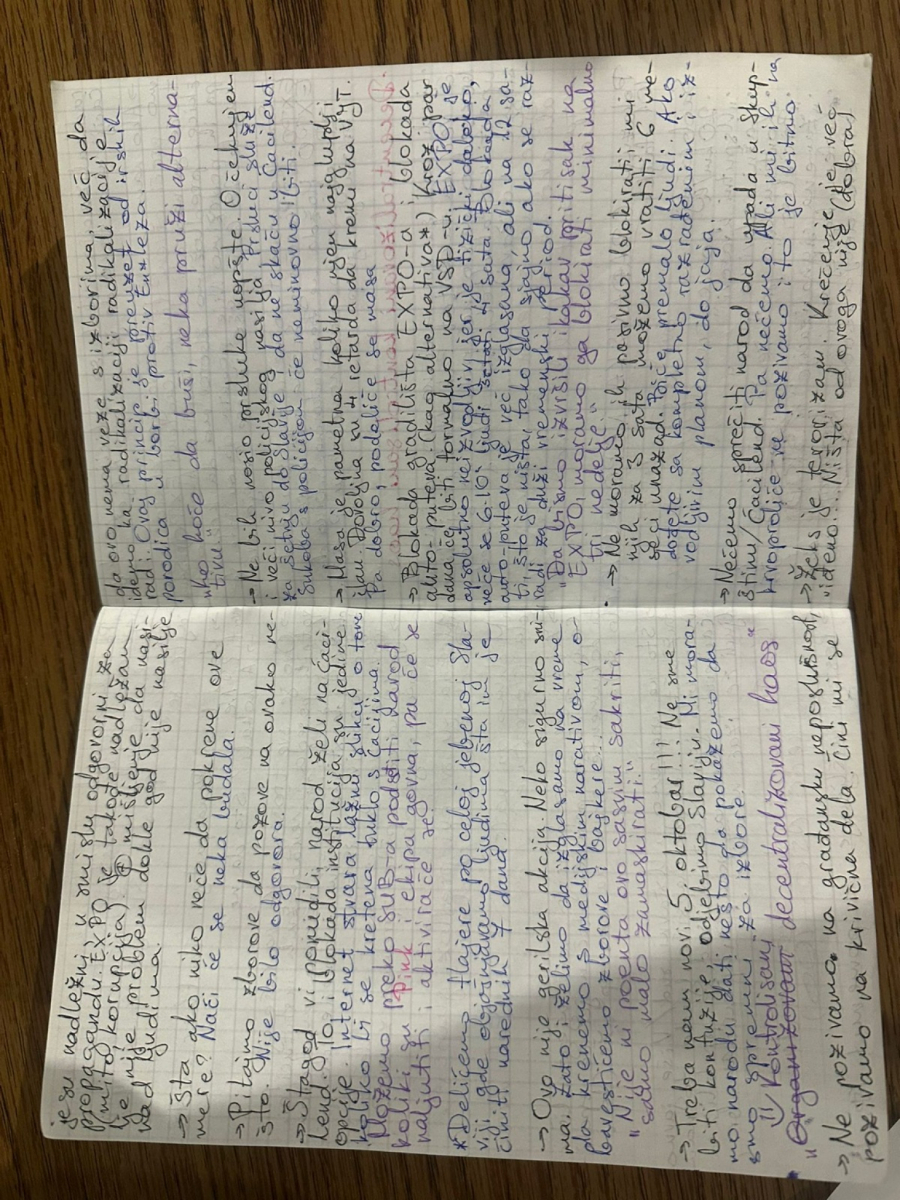 je su nadležni u smislu odgovorni za
propagandu. EXPO je takođe nadležan
(mito korupcija) Omišljenje da nasi-
lje nije problem dokle god nije nasilje
nad ljudima.
→ Šta ako niko neće da pokrene ove
mere? Naći će se neka budala.
→ Pitajmo zborove da pozove na ovako ne-
što. Nije bilo odgovora.
→ Štagod vi ponudili, narod želi na Ćaci-
lend. To i blokada institucija su jedine
opcije. Internet stvara lažnu sliku o tome
koliko bi se kretena tuklo s ćacijima.
Možemo preko SUB-a podsetiti narod
koliki su Pink i ekipa govna, pa će se
naljutiti i aktiviraće se
*Delićemo flajere po celoj jebenoj Sla-
viji gde objašnjavamo ljudima šta im je
činiti narednih 7 dana.
→ Ovo nije gerilska akcija. Neko sigurno sni-
ma. Zato i želimo da izglasamo na vreme
da krenemo s medijskim narativom, o-
bavestićemo zborove i bajkere...
"Nije ni poenta ovo sasvim sakriti,
samo malo zamaskirati."
→ Treba nam novi 5. oktobar!!! Ne sme
biti konfuzije. Odjebimo Slaviju. Mi mora-
mo narodu dati nešto da pokažemo da
smo spremni za izbore.
" Organizovani Kontrolisani decentralizovani haos"
→ Ne pozivamo na građansku neposlušnost,
pozivamo na krivična dela. Čini mi se
da ovo nema veze s izborima, već da
idemo ka radikalizaciji radikalizacije
radi. Ovaj princip je preuzet od irskih
porodica u borbi protiv Engleza.
"Ko hoće da buši, neka pruži alterna-
tivu"
→ Ne bih nosio prsluke uopšte. Očekujem
i veći nivo policijskog nasilja. Prsluci služe
za šetnju do Slavije da ne skaču u Ćacilend.
Sukoba s policijom će neminovno biti.
→ Masa je pametna koliko njen najgluplji
član. Dovoljna su 4 retarda da krenu na VJT.
Pa dobro, podeliće se masa
→ Blokada gradilišta EXPO-a i blokada
auto-puteva. (kao alternativa) Kroz par
dana će biti formalno na VSD-u. EXPO je
apsolutno neizvodljiv jer je fizički daleko,
neće se 6.10. ljudi šetati 2 sata. Blokada
auto-puteva je već izglasana, ali na 12 sa-
ti, što je ništa, tako da sjajno ako se raz-
radi za duži vremenski period.
"Da bismo izvršili ikakav pritisak na
EXPO, moramo ga blokirati minimalno
tri nedelje"
→ Ne moramo ih pasivno blokirati, mi
njih za 3 sata možemo vratiti 6 me-
seci unazad. Biće premalo ljudi. Ako
dođete sa kompletno razrađenim i iz-
vodljivim planom, do jaja.
→ Nećemo sprečiti narod da upada u Skup-
štinu/Ćacilend. Pa nećemo. Ali mi ih na
krvoproliće ne pozivamo i to je bitno.
→ Žeks je terorizam. Krečenje je već
viđeno... Ništa od ovoga nije (dobra)